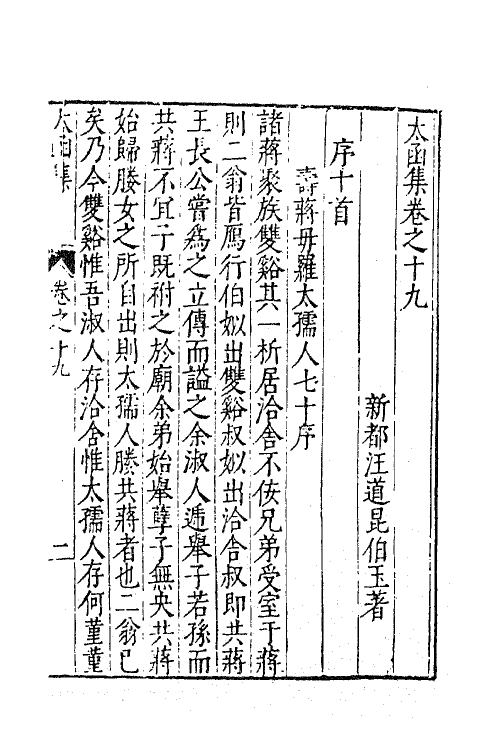 太函集卷之十九
新都汪道昆伯玉著
序十首
壽蔣母羅太孺人七十序
諸蔣聚族雙谿其一析居洽舍不佞兄弟受室于蔣
則二翁皆鴈行伯姒出雙谿叔姒出洽舍叔即共蔣
王長公嘗爲之立傳而謚之余淑人遞舉子若孫而
共蔣不宜子既祔之於廟余弟始舉孽子無央共蔣
始歸媵女之所自出則太孺人媵共蔣者也二翁已
矣乃今雙谿惟吾淑人存洽舍惟太孺人存何蓳蓳
太函集
卷之十九
二